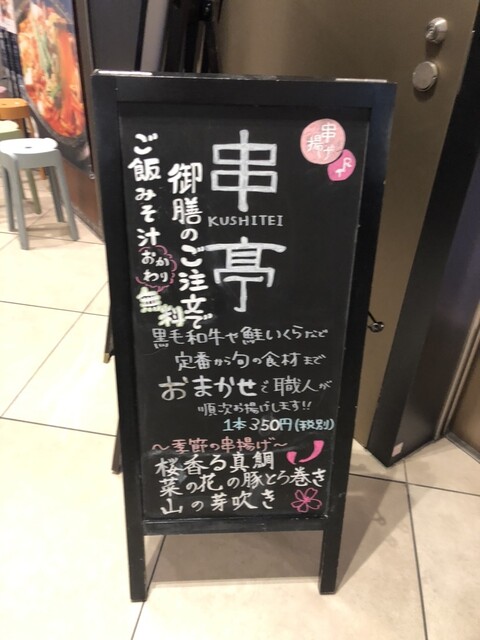 串亭
KUSHITEI
串揚げ
御膳のご注文で
ご飯みそ汁
おかわり
無料
黒毛和牛や鮭いくらなど
定番から旬の食材まで
おまかせで職人が
順次お揚げします!!
1本350円(税別)
～季節の串揚げ～
桜香る真鯛
菜の花の豚とろ巻き
山の芽吹き